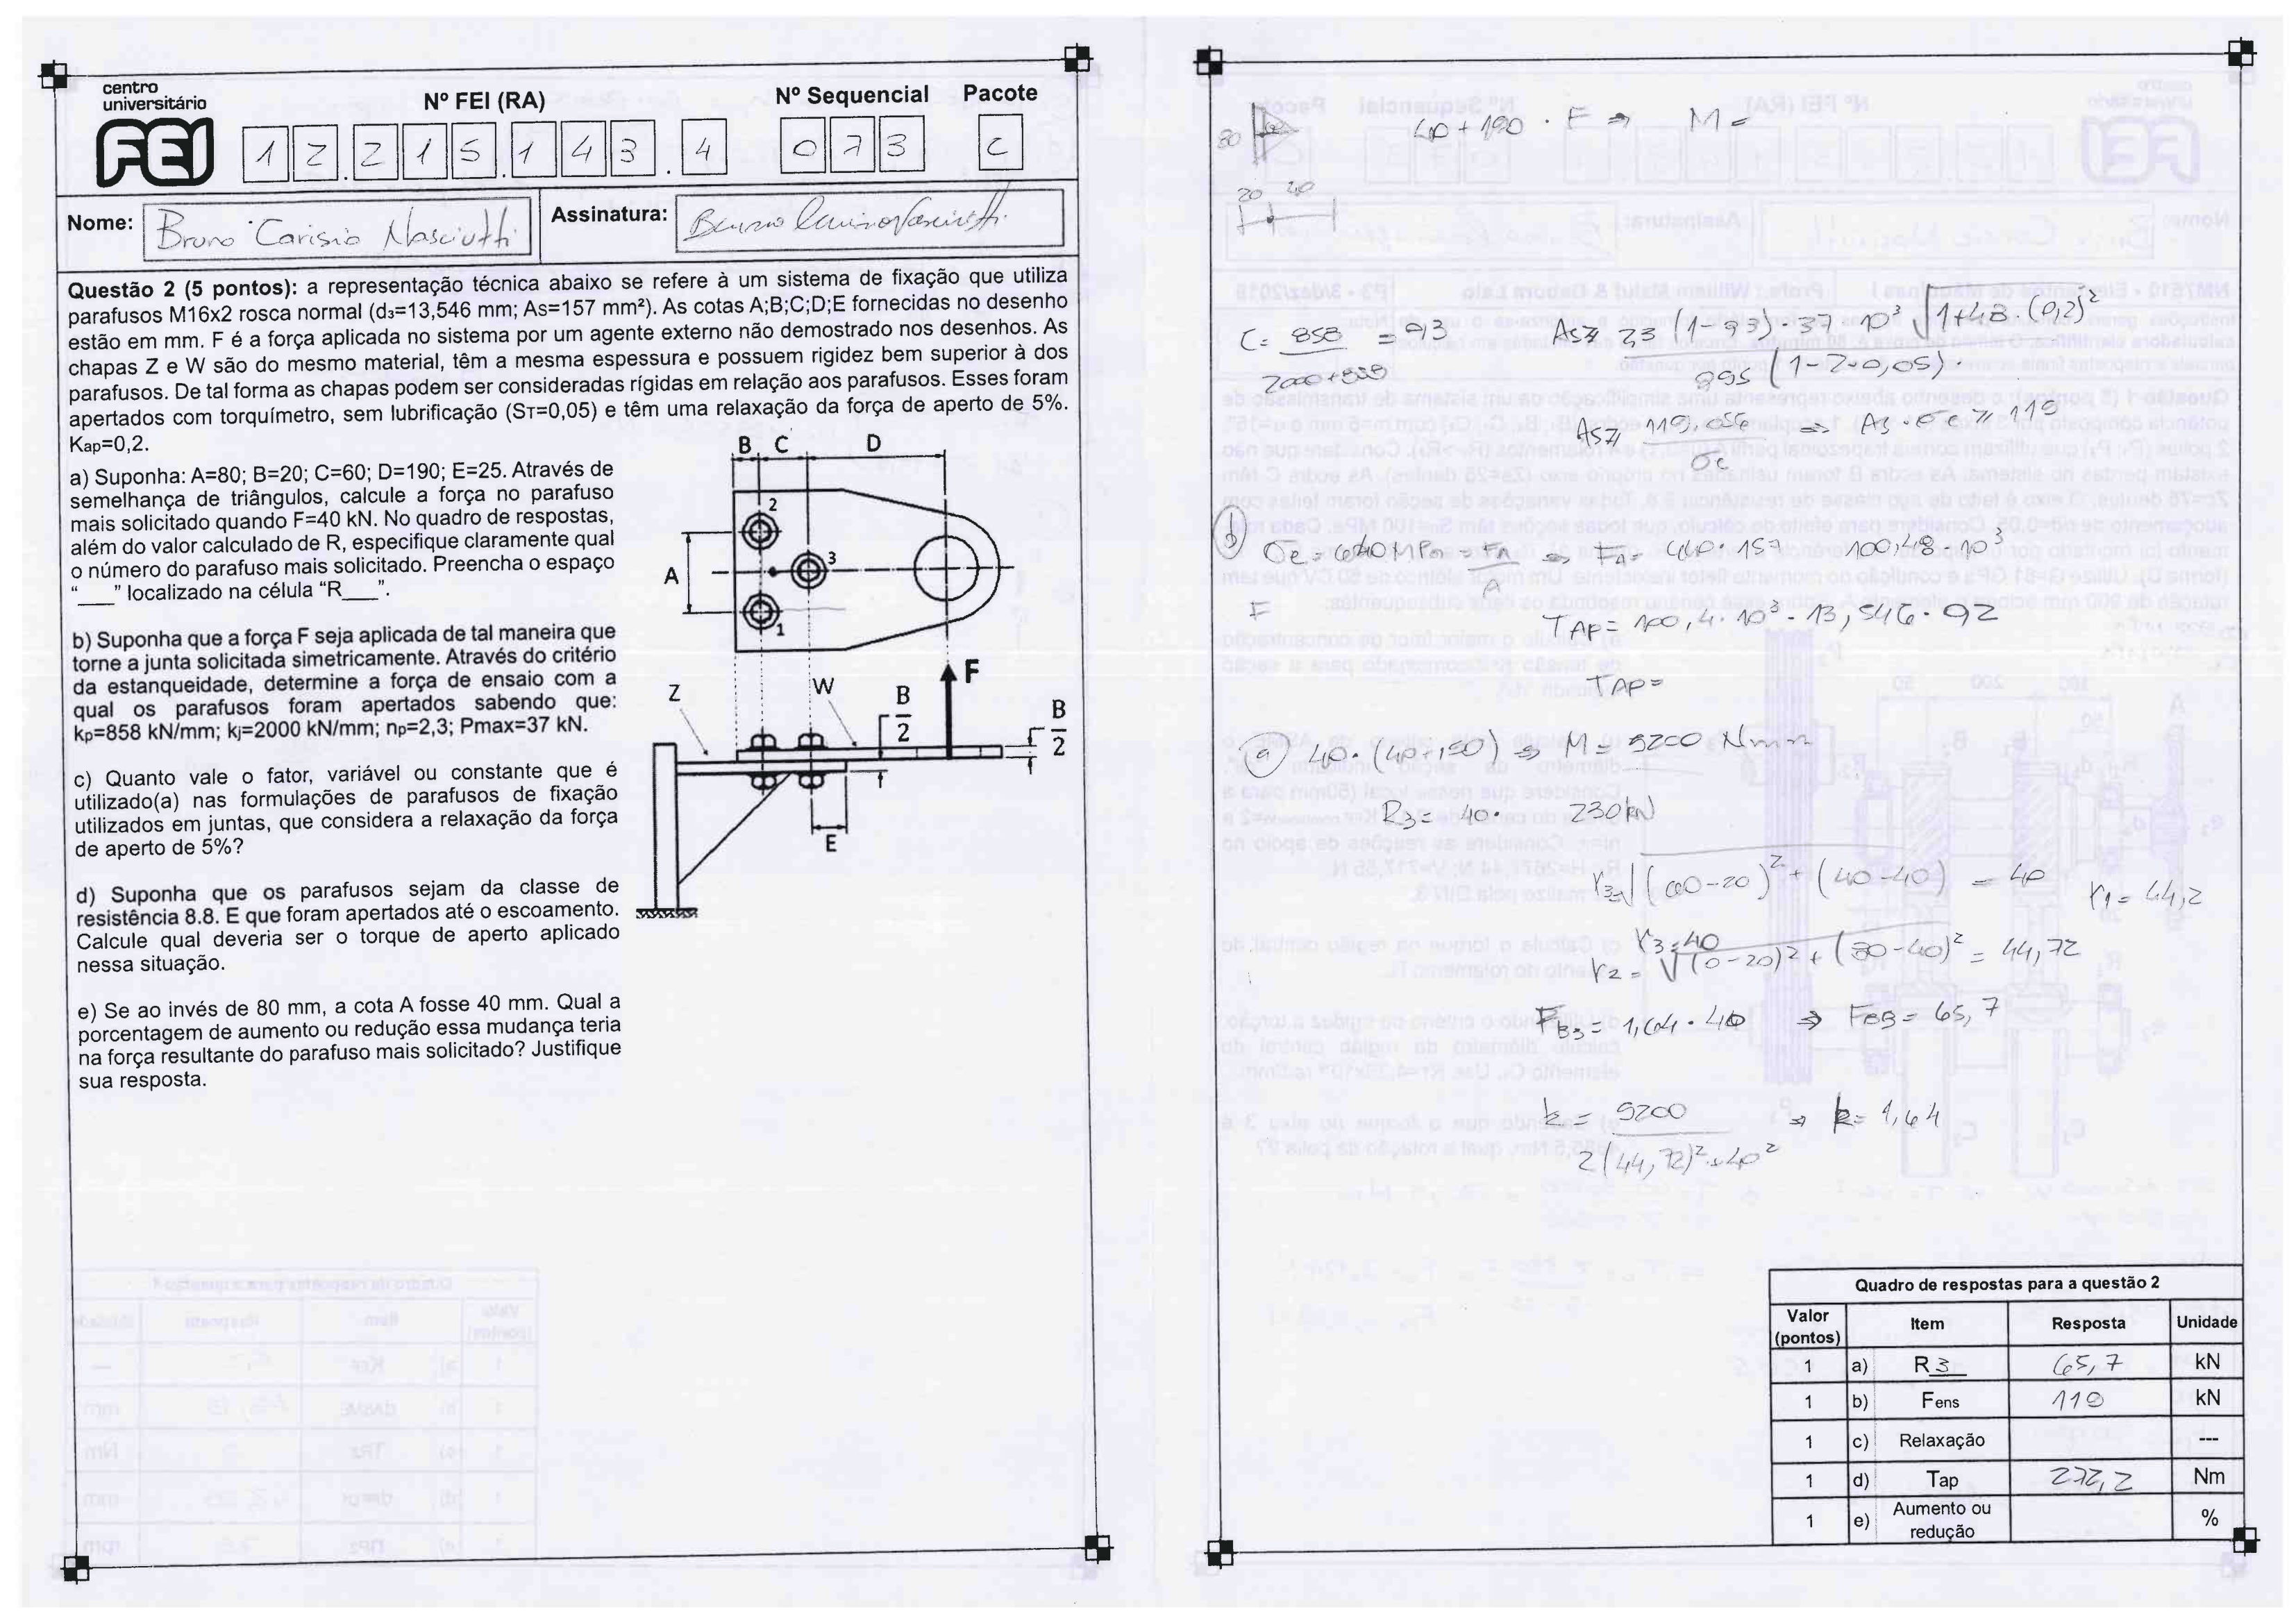 centro
universitário
FEI
Nº FEI (RA)
Nº Sequencial Pacote
1 2 . 2 1 5 . 1 4 3 . 4 0 7 3 C
Nome: Bruno Carisio Nasciutti Assinatura:
Questão 2 (5 pontos): a representação técnica abaixo se refere à um sistema de fixação que utiliza
parafusos M16x2 rosca normal (d₃=13,546 mm; As=157 mm²). As cotas A;B;C;D;E fornecidas no desenho
estão em mm. F é a força aplicada no sistema por um agente externo não demostrado nos desenhos. As
chapas Z e W são do mesmo material, têm a mesma espessura e possuem rigidez bem superior à dos
parafusos. De tal forma as chapas podem ser consideradas rígidas em relação aos parafusos. Esses foram
apertados com torquímetro, sem lubrificação (Sᴛ=0,05) e têm uma relaxação da força de aperto de 5%.
Kap=0,2.
a) Suponha: A=80; B=20; C=60; D=190; E=25. Através de
semelhança de triângulos, calcule a força no parafuso
mais solicitado quando F=40 kN. No quadro de respostas,
além do valor calculado de R, especifique claramente qual
o número do parafuso mais solicitado. Preencha o espaço
“___” localizado na célula “R___”.
b) Suponha que a força F seja aplicada de tal maneira que
torne a junta solicitada simetricamente. Através do critério
da estanqueidade, determine a força de ensaio com a
qual os parafusos foram apertados sabendo que:
kp=858 kN/mm; kj=2000 kN/mm; np=2,3; Pmax=37 kN.
c) Quanto vale o fator, variável ou constante que é
utilizado(a) nas formulações de parafusos de fixação
utilizados em juntas, que considera a relaxação da força
de aperto de 5%?
d) Suponha que os parafusos sejam da classe de
resistência 8.8. E que foram apertados até o escoamento.
Calcule qual deveria ser o torque de aperto aplicado
nessa situação.
e) Se ao invés de 80 mm, a cota A fosse 40 mm. Qual a
porcentagem de aumento ou redução essa mudança teria
na força resultante do parafuso mais solicitado? Justifique
sua resposta.
B C D
2
A
3
1
F
Z W B/2 B/2
E
80
40+190 · F ⇒ M =
20 40
C = 858 / 2000+858 = 0,3
As ≥ 2,3 (1-0,3) · 37 10³ √1+48·(0,2)² / 0,95 (1-2·0,05)
As ≥ 119,056 / σe ⇒ As · σe ≥ 119
σe = 640 MPa = FA / A ⇒ FA = 640 · 157 100,48 · 10³
F
TAP = 100,4 · 10³ · 13,546 · 0,2
TAP =
a) 40 · (40+190) ⇒ M = 9200 Nmm
R3 = 40 · 230 kN
r3 = √(60-20)² + (40-40) = 40 r1 = 44,2
r3 = 40
r2 = √(0-20)² + (80-40)² = 44,72
FB3 = 1,64 · 40 ⇒ FB3 = 65,7
k = 9200 / 2(44,72)² + 40² ⇒ k = 1,64
Quadro de respostas para a questão 2
Valor (pontos) Item Resposta Unidade
1 a) R 3 65,7 kN
1 b) Fens 119 kN
1 c) Relaxação ---
1 d) Tap 272,2 Nm
1 e) Aumento ou redução %